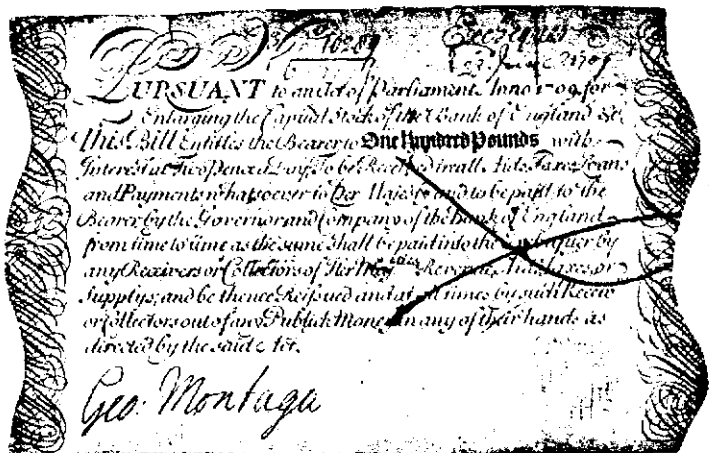 No 10289 Exchequer
23 June 1709
PURSUANT to an Act of Parliament Anno 1709 for
Enlarging the Capital Stock of the Bank of England &c
This Bill Entitles the Bearer to One Hundred Pounds with
Interest at Two Pence a Day, To be Received in all Aids Taxes Loans
and Payments whatsoever to Her Majesty and to be paid to the
Bearer by the Governor and Company of the Bank of England
from time to time as the same shall be paid into the Exchequer by
any Receivers or Collectors of Her Majties Revenue, Aids Taxes or
Supplys, and be thence Reissued and at all times by such Receivrs
or Collectors out of any Publick Money in any of their hands as
directed by the said Act.
Geo: Montagu